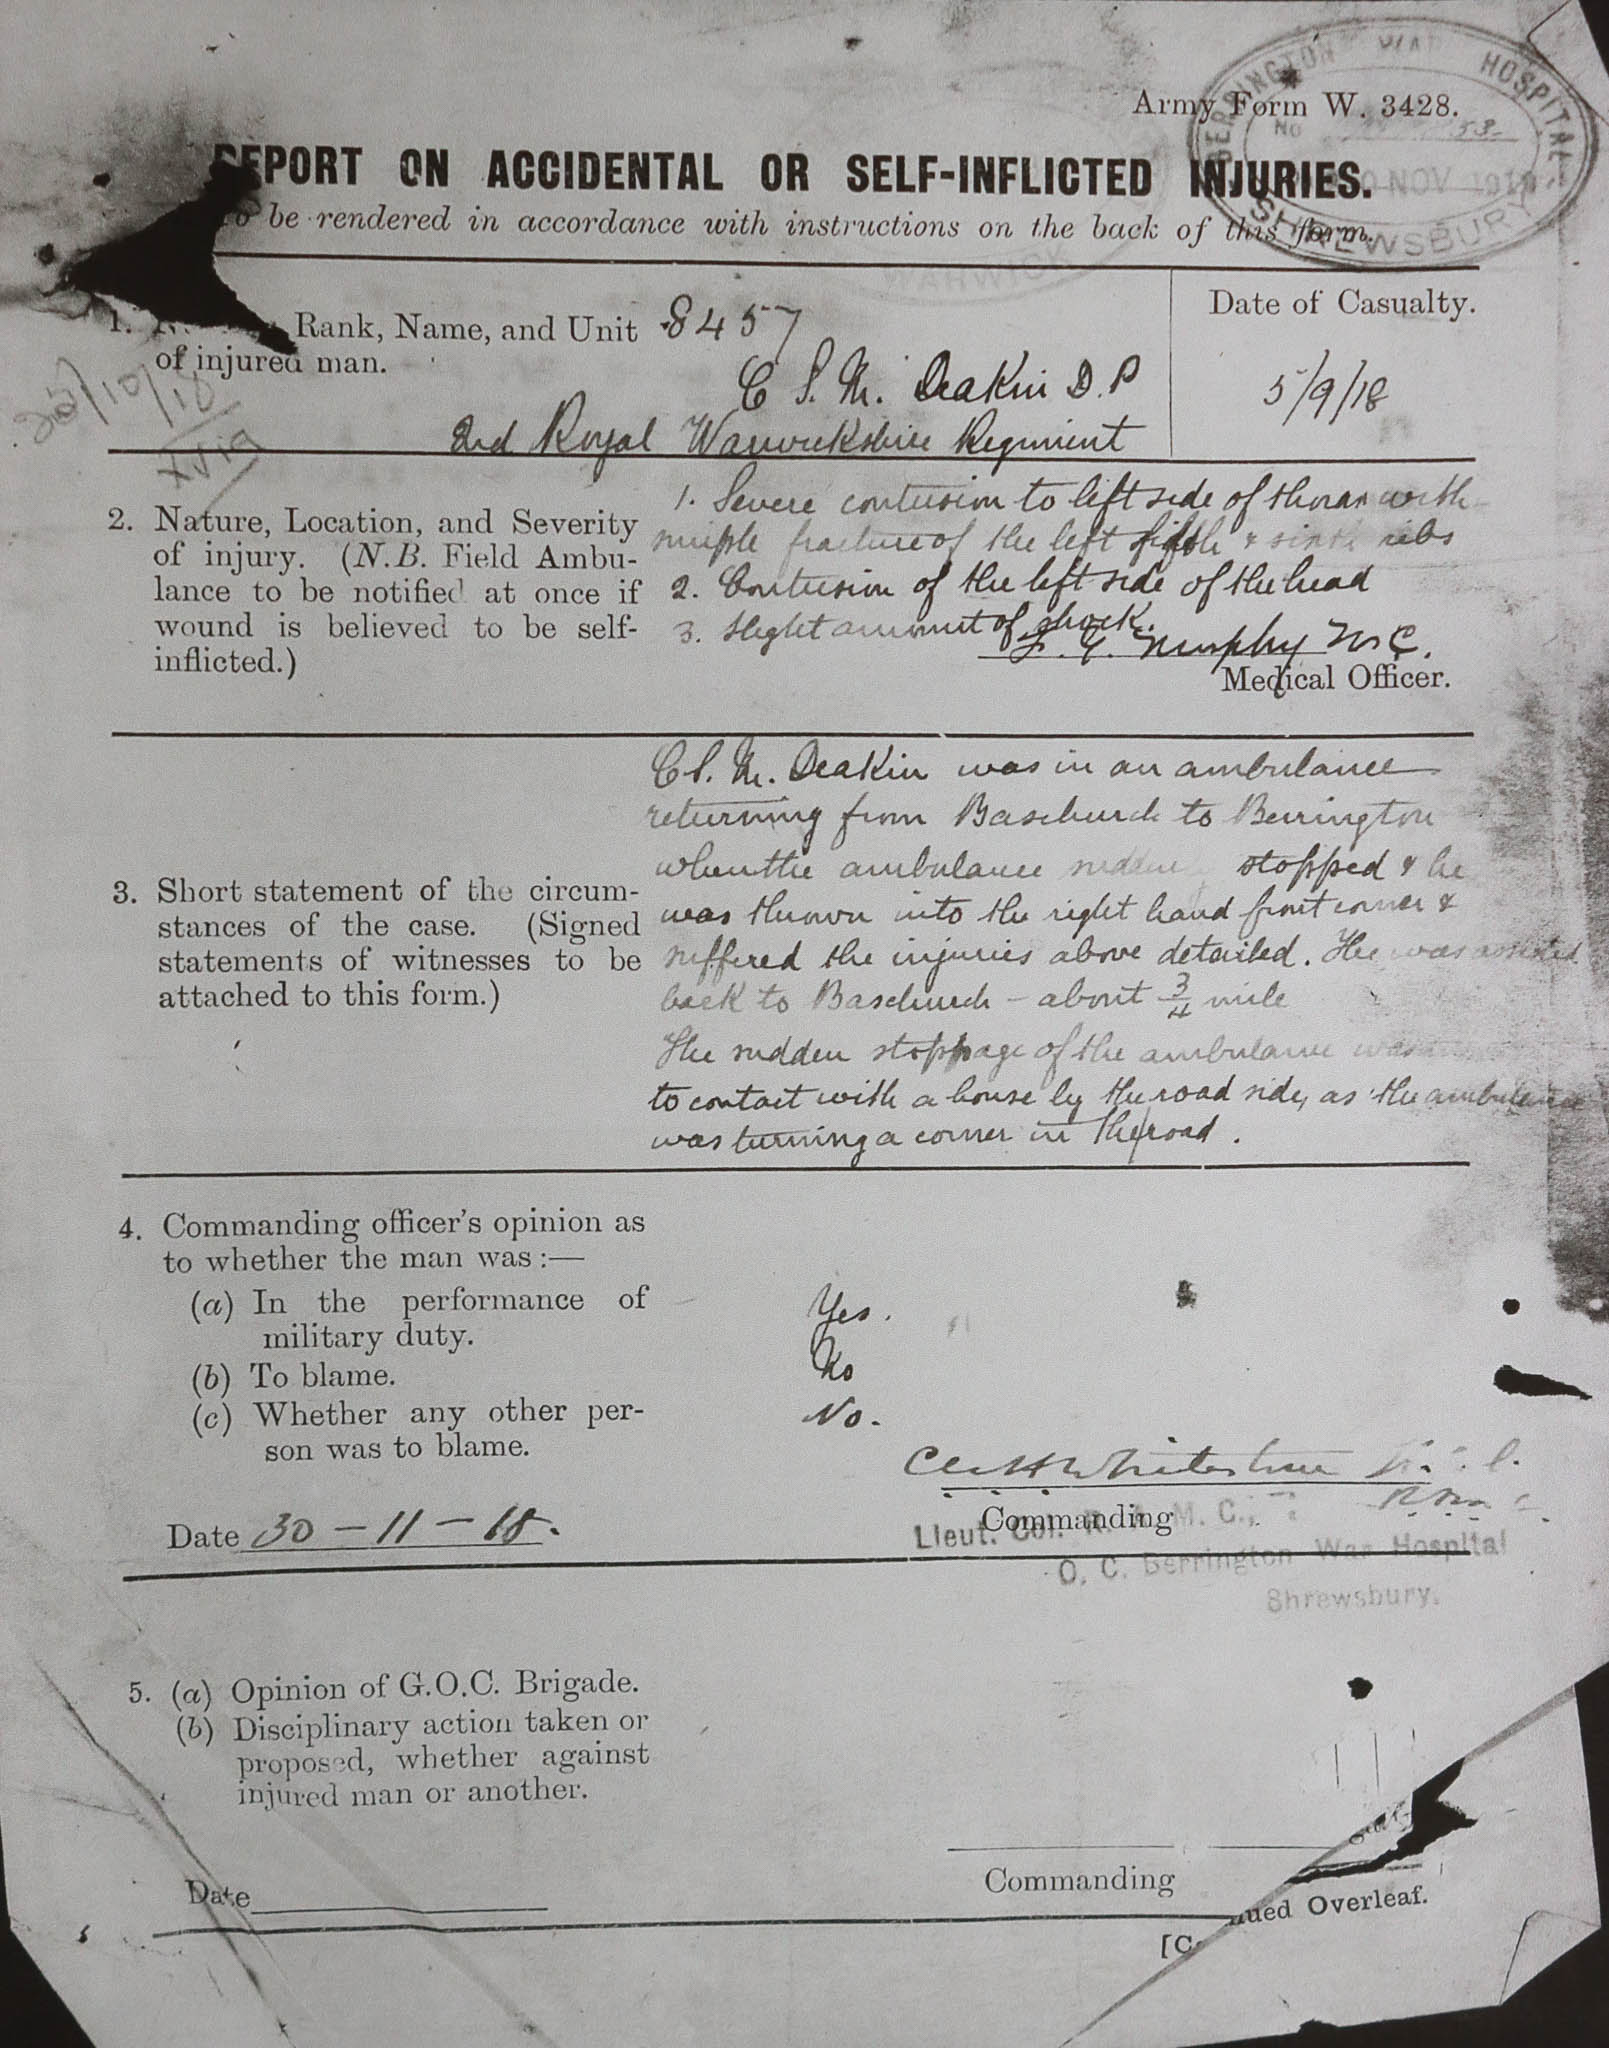 Army Form W. 3428.
BERRINGTON WAR HOSPITAL
No 53
NOV 1918
SHREWSBURY
REPORT ON ACCIDENTAL OR SELF-INFLICTED INJURIES.
To be rendered in accordance with instructions on the back of this form.
WARWICK
1. Rank, Name, and Unit
of injured man.
8457
C S. M. Deakin D. P
2nd Royal Warwickshire Regiment
Date of Casualty.
5/9/18
2. Nature, Location, and Severity
of injury. (N.B. Field Ambu-
lance to be notified at once if
wound is believed to be self-
inflicted.)
1. Severe contusion to left side of thorax with
simple fracture of the left fifth & sixth ribs
2. Contusion of the left side of the head
3. Slight amount of shock.
Murphy
Medical Officer.
3. Short statement of the circum-
stances of the case. (Signed
statements of witnesses to be
attached to this form.)
C S. M. Deakin was in an ambulance
returning from Baschurch to Berrington
when the ambulance sudden stopped & he
was thrown into the right hand front corner &
suffered the injuries above detailed. He was assisted
back to Baschurch – about 3/4 mile
The sudden stoppage of the ambulance was
to contact with a house by the road side, as the ambulance
was turning a corner in the road.
4. Commanding officer's opinion as
to whether the man was :—
(a) In the performance of
military duty.
Yes.
(b) To blame.
No
(c) Whether any other per-
son was to blame.
No.
Date 30 – 11 – 18.
Commanding
Lieut. Col. R. A. M. C.,
O. C. Berrington War Hospital
Shrewsbury.
5. (a) Opinion of G.O.C. Brigade.
(b) Disciplinary action taken or
proposed, whether against
injured man or another.
Commanding
Date
[Co
nued Overleaf.